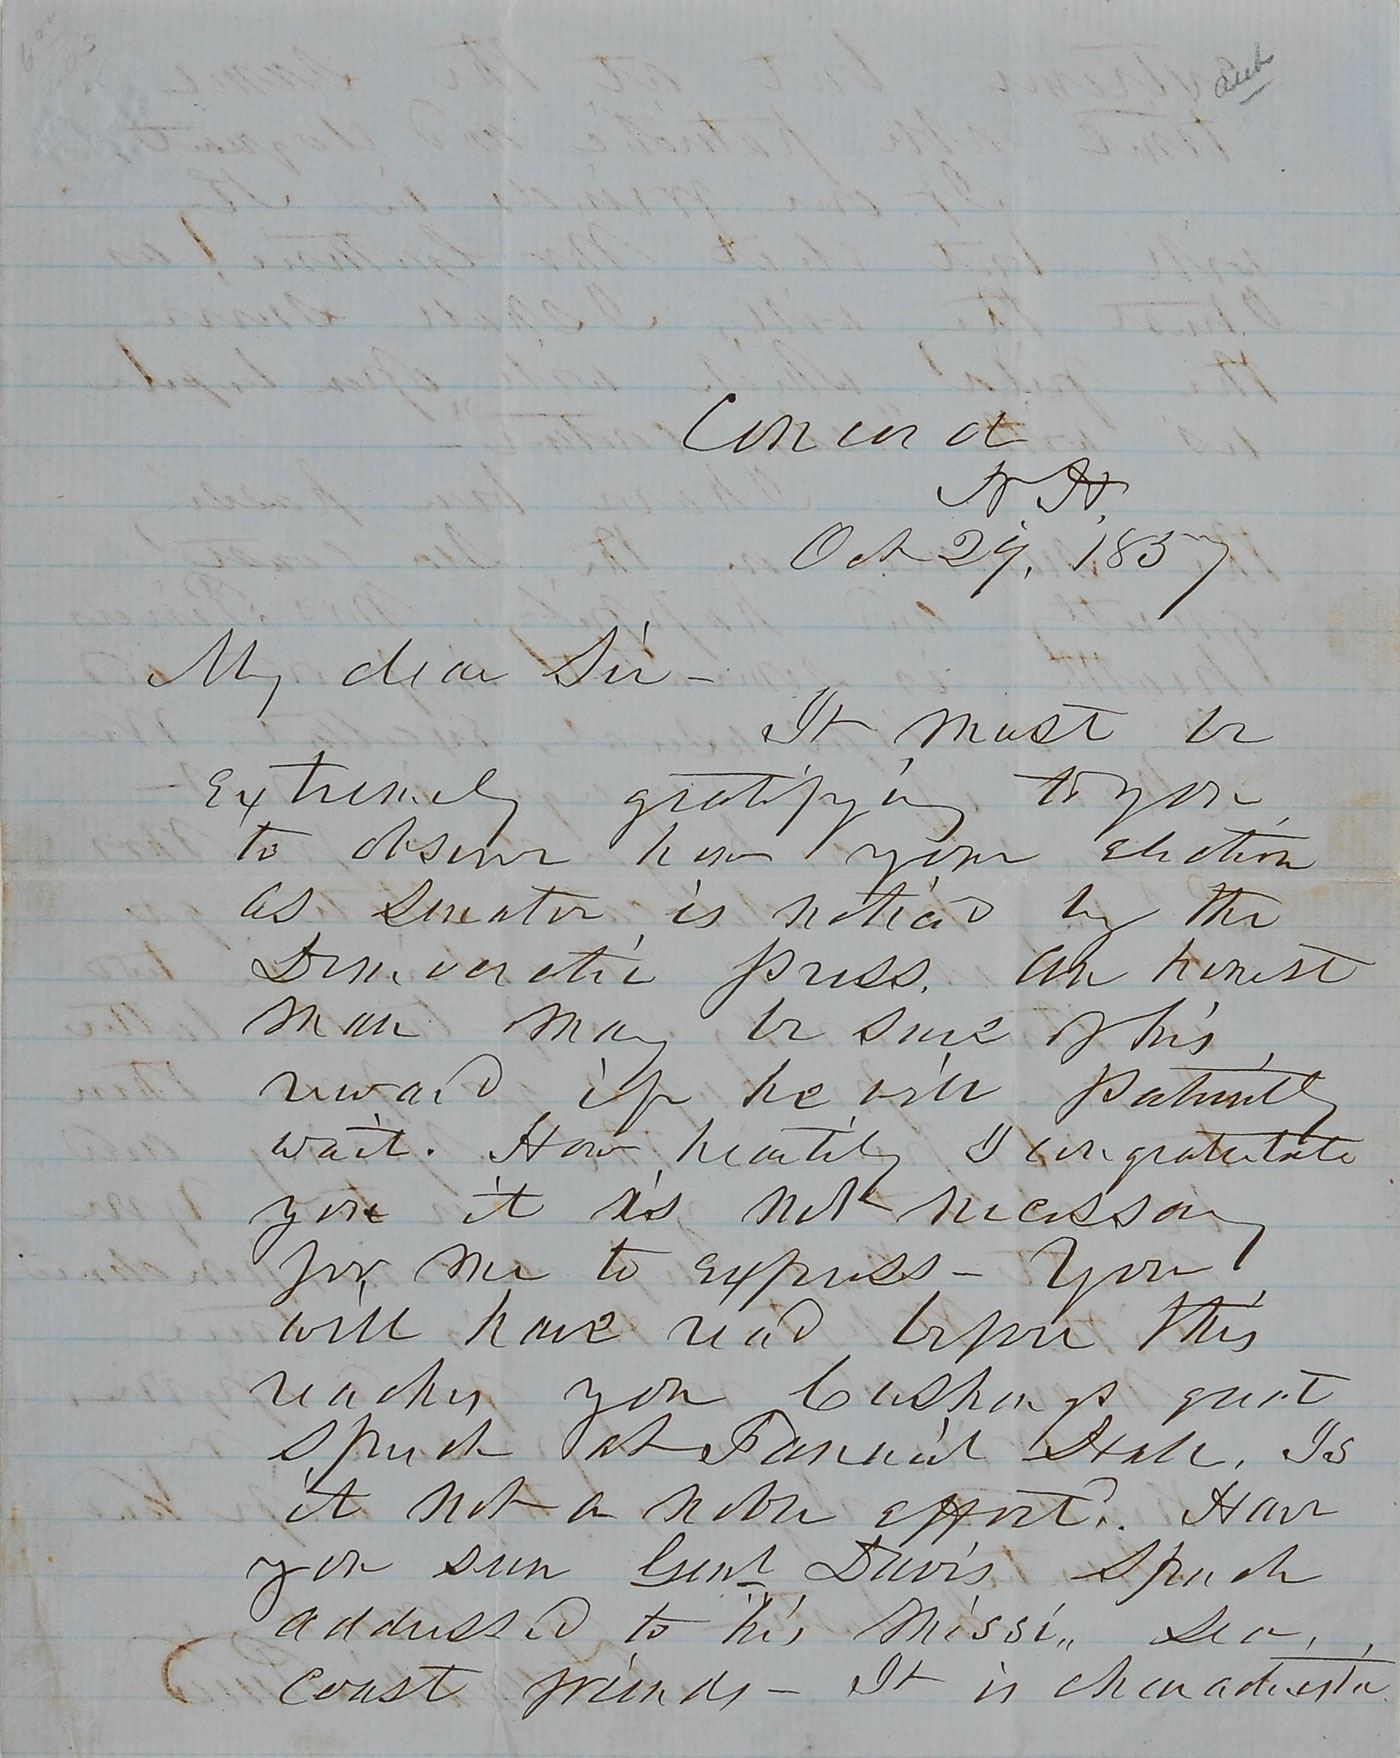 Concord
N.H.
Oct 29, 1857
My dear Sir –
It must be
extremely gratifying to you
to observe how your election
as Senator is noticed by the
Democratic press. An honest
man may be sure of his
reward if he will patiently
wait. How heartily I congratulate
you it is not necessary
for me to express – You
will have read before this
reaches you Cushings great
speech at Fanueil Hall. Is
it not a noble effort?. Have
you seen Genl Davis speech
addressed to his Missi,, sea,,
coast friends – It is characteristic